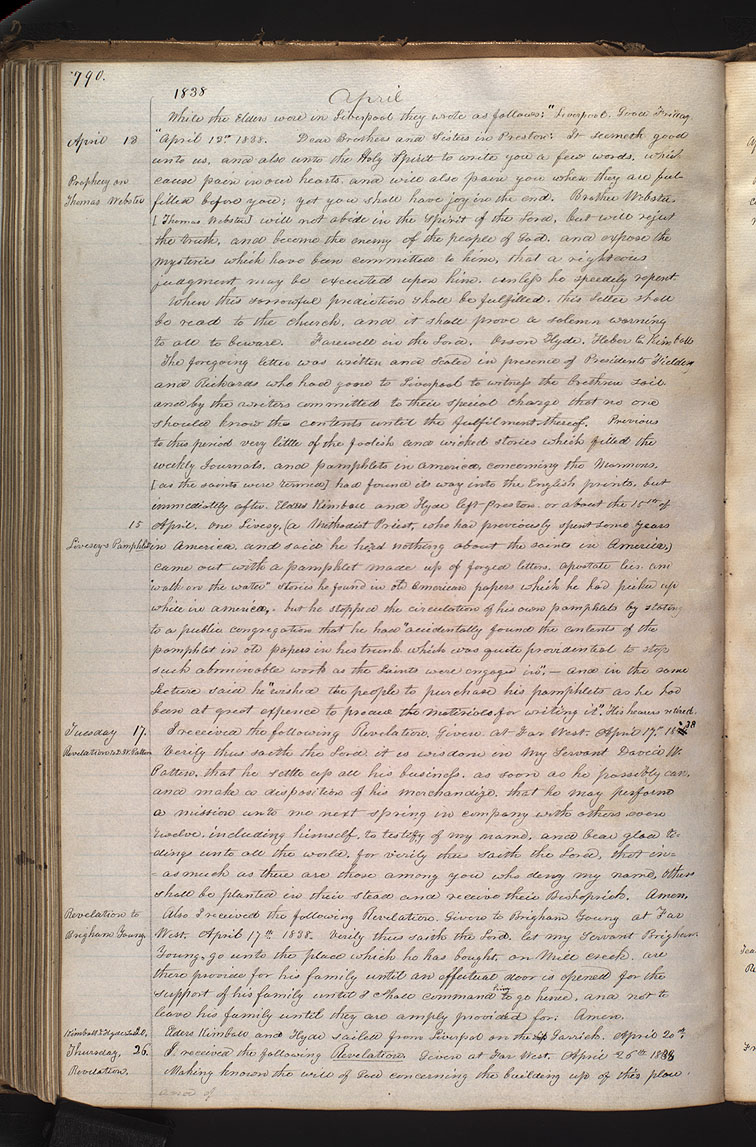 790.
1838
April
While the Elders were in Liverpool they wrote as follows; "Liverpool. Good Friday
April 13
"April 13th 1838. Dear Brothers and Sisters in Preston: It seemeth good
unto us, and also unto the Holy Spirit to write you a few words, which
Prophecy on
cause pain in our hearts, and will also pain you when they are ful-
Thomas Webster
filled before you; yet you shall have joy in the end. Brother Webster.
[Thomas Webster] will not abide in the Spirit of the Lord, but will reject
the truth, and become the enemy of the people of God. and expose the
mysteries which have been committed to him, that a righteous
judgment may be executed upon him. unless he speedily repent.
When this sorrowful prediction shall be fulfilled. this letter shall
be read to the church, and it shall prove a solemn warning
to all to beware. Farewell in the Lord. Orson Hyde. Heber C. Kimball
The foregoing letter was written and sealed in presence of Presidents Fielding
and Richards who had gone to Liverpool to witness the brethren sail
and by the writers committed to their special charge that no one
should know the contents until the fulfilment thereof. Previous
to this period very little of the foolish and wicked stories which filled the
weekly Journals, and pamphlets in america, concerning the Mormons.
[as the saints were termed] had found its way into the English prints, but
immediatly after Elders Kimball and Hyde left Preston. or about the 15th of
15
April. one Livesy, (a Methodist Priest, who had previously spent some years
Livesey's Pamphlet
in America, and said he heard nothing about the saints in America,)
came out with a pamphlet made up of forged letters, apostate lies and
"walk on the water" stories he found in old American papers which he had picked up
while in america,. but he stopped the circulation of his own pamphlets by stating
to a public congregation that he had "accidentally found the contents of the
pamphlet in old papers in his trunk which was quite providential to stop
such abominable work as the Saints were engaged in", — and in the same
Lecture said he "wished the people to purchase his pamphlets as he had
been at great expence to procure the materials for writing it". His hearers retired.
Tuesday 17.
I received the following Revelation, Given at Far West. April 17th 1838
Revelation to D. W. Patten
Verily thus saith the Lord it is wisdom in My Servant David W.
Patten, that he settle up all his business, as soon as he possibly can,
and make a disposition of his merchandize, that he may perform
a mission unto me next spring in company with others even
twelve, including himself, to testify of my name, and bear glad ti-
dings unto all the world, for verily thus saith the Lord, that in-
asmuch as there are those among you who deny my name, others
shall be planted in their stead and receive their Bishoprick. Amen.
Revelation to
Also I received the following Revelation, Given to Brigham Young at Far
Brigham Young.
West. April 17th 1838. Verily thus saith the Lord, let my Servant Brigham
Young, go unto the place which he has bought, on Mill creek. and
there provide for his family until an effectual door is opened for the
support of his family until I shall command him to go hence, and not to
leave his family until they are amply provided for. Amen.
Kimball & Hyde Sail 20.
Elders Kimball and Hyde sailed from Liverpool on the Garrick. April 20th.
Thursday, 26.
I received the following Revelation Given at Far West. April 26th 1838
Revelation.
Making known the will of God concerning the building up of this place.